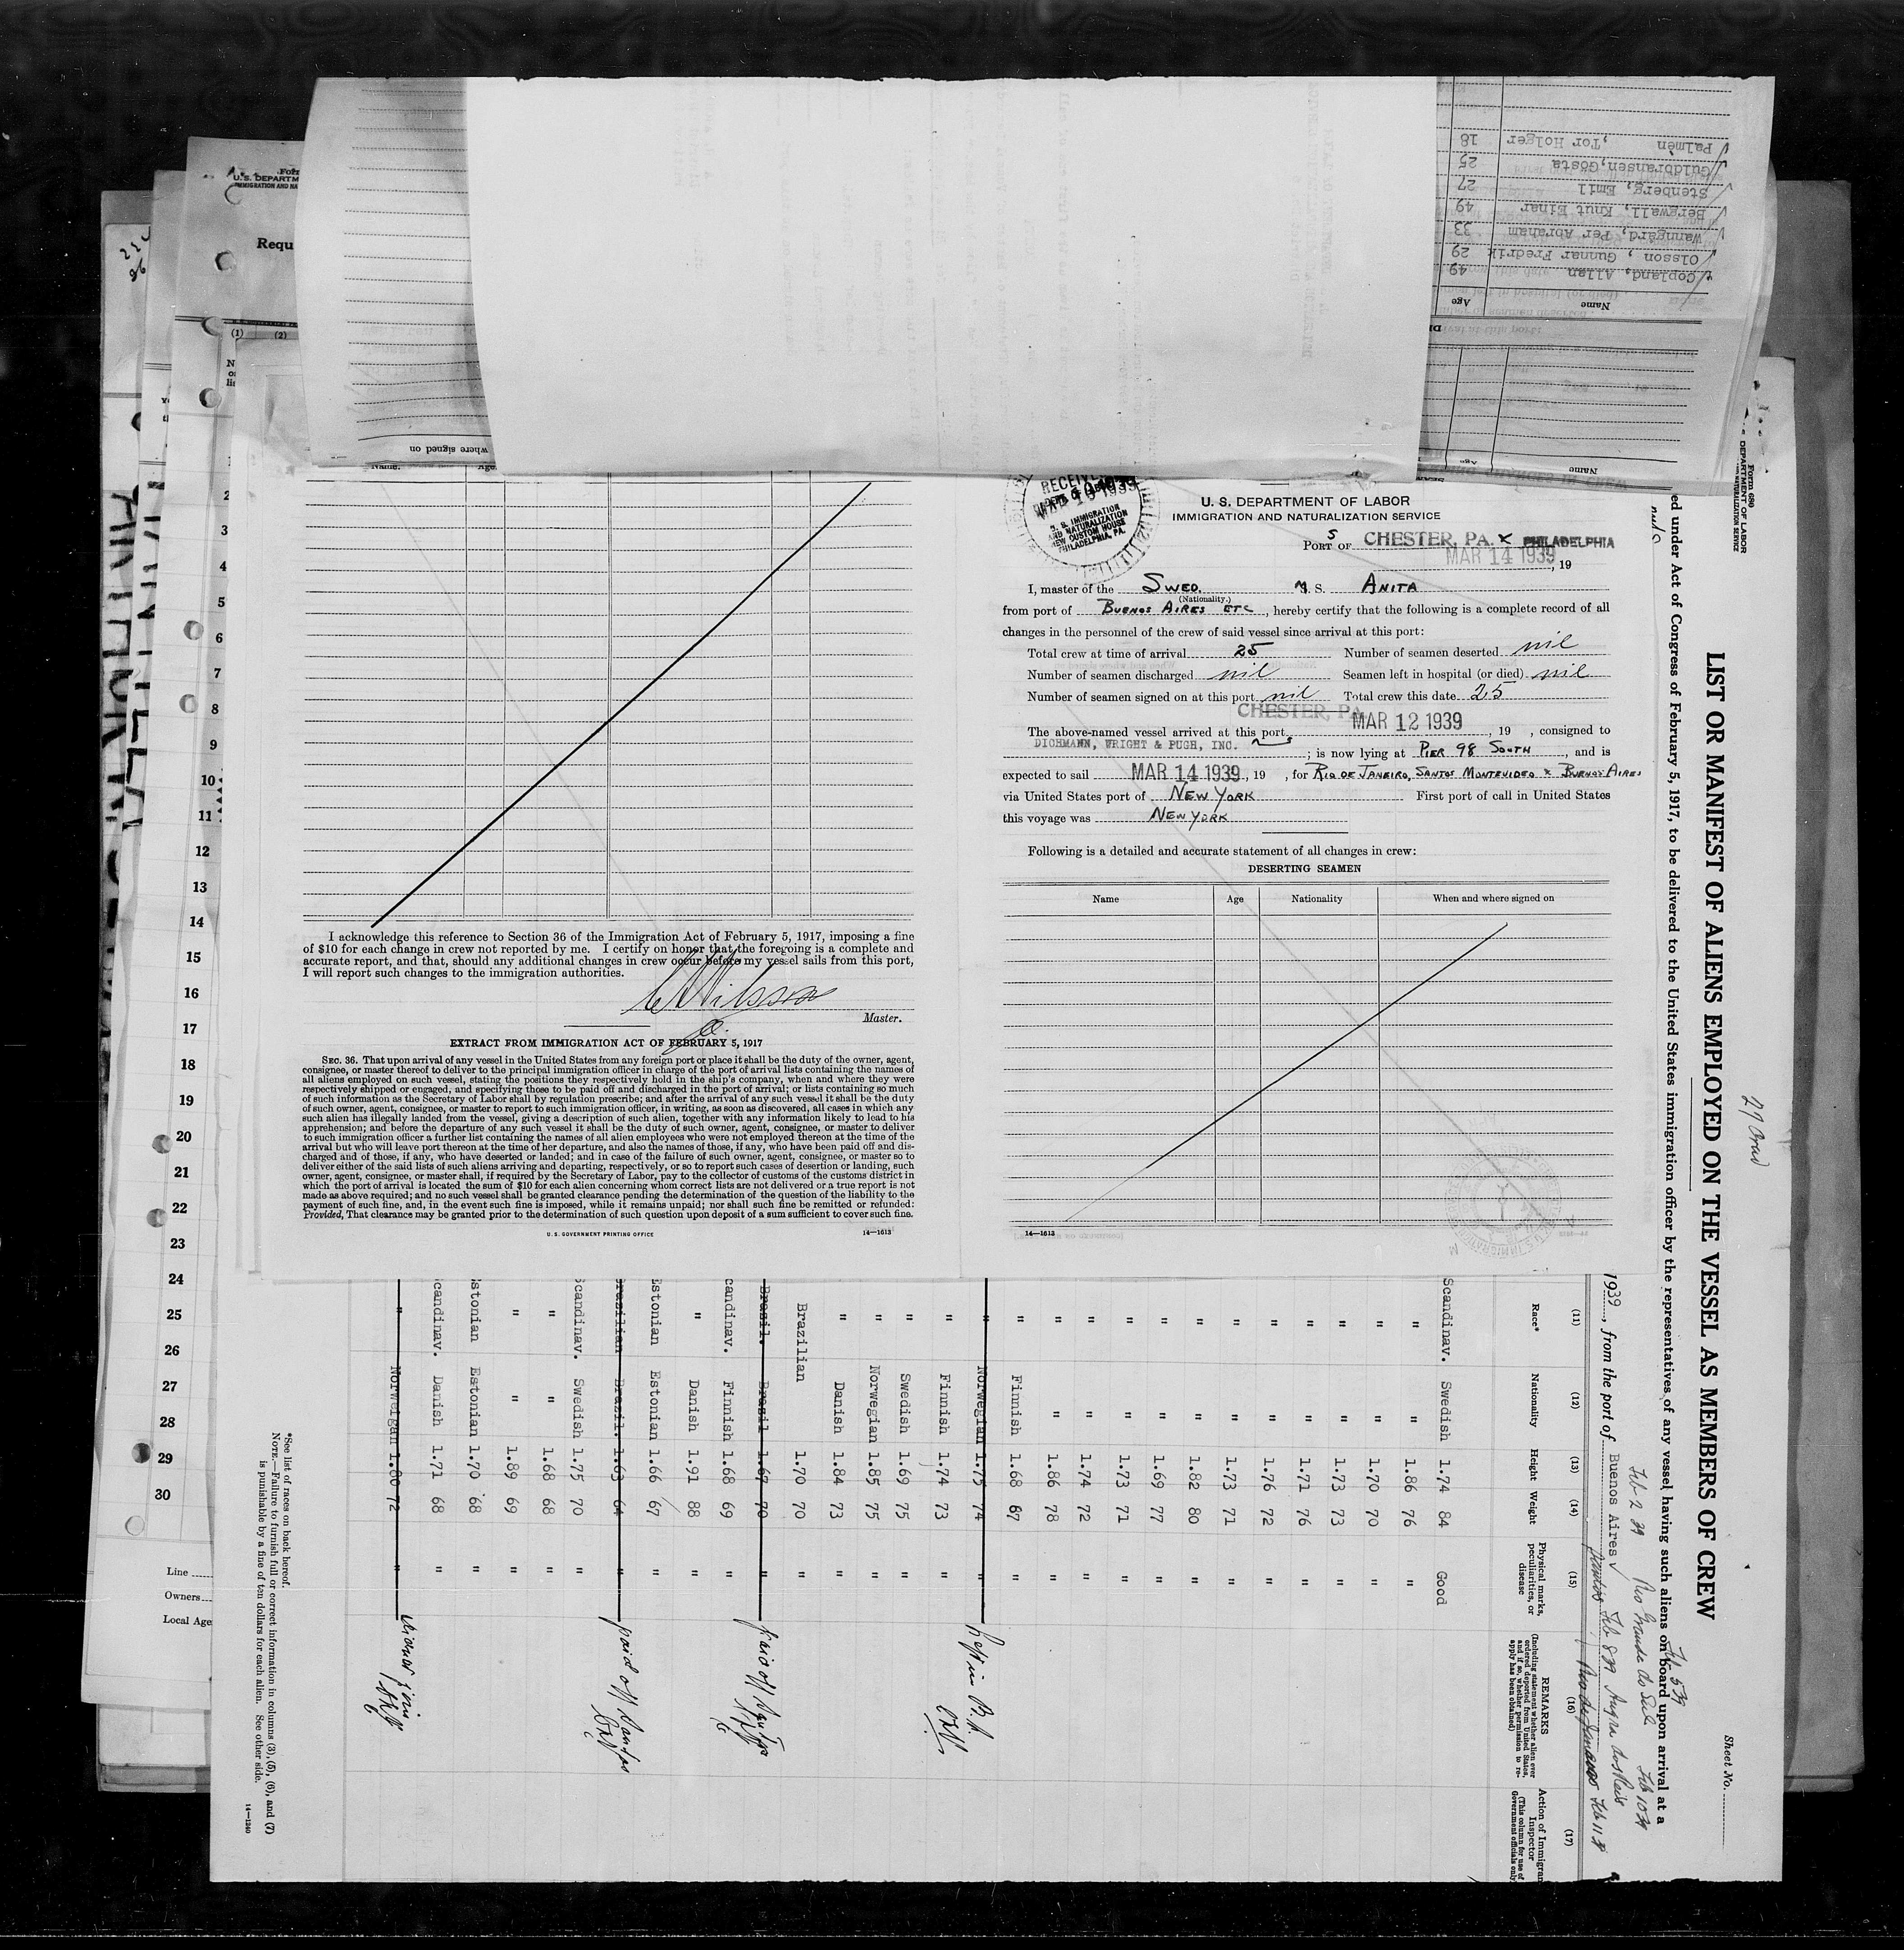 Palmèn , Tor Holger 18
Guldbransen, Gösta 25
Stenberg, Emil 27
Bergwall, Knut Einar 49
Warngård, Per Abraham 33
Olsson , Gunnar Fredrik 29
Copland, Allan 49
Name Age
where signed on
Name
U.S. DEPARTM
IMMIGRATION AND NA
Requ
(1) (2)
2
3
4
5
6
7
8
9
10
11
12
13
14
15
16
17
18
19
20
21
22
23
24
25
26
27
28
29
30
Line
Owners
Local Age
I acknowledge this reference to Section 36 of the Immigration Act of February 5, 1917, imposing a fine
of $10 for each change in crew not reported by me. I certify on honor that the foregoing is a complete and
accurate report, and that, should any additional changes in crew occur before my vessel sails from this port,
I will report such changes to the immigration authorities.
Master.
EXTRACT FROM IMMIGRATION ACT OF FEBRUARY 5, 1917
SEC. 36. That upon arrival of any vessel in the United States from any foreign port or place it shall be the duty of the owner, agent,
consignee, or master thereof to deliver to the principal immigration officer in charge of the port of arrival lists containing the names of
all aliens employed on such vessel, stating the positions they respectively hold in the ship's company, when and where they were
respectively shipped or engaged, and specifying those to be paid off and discharged in the port of arrival; or lists containing so much
of such information as the Secretary of Labor shall by regulation prescribe; and after the arrival of any such vessel it shall be the duty
of such owner, agent, consignee, or master to report to such immigration officer, in writing, as soon as discovered, all cases in which any
such alien has illegally landed from the vessel, giving a description of such alien, together with any information likely to lead to his
apprehension; and before the departure of any such vessel it shall be the duty of such owner, agent, consignee, or master to deliver
to such immigration officer a further list containing the names of all alien employees who were not employed thereon at the time of the
arrival but who will leave port thereon at the time of her departure, and also the names of those, if any, who have been paid off and dis-
charged and of those, if any, who have deserted or landed; and in case of the failure of such owner, agent, consignee, or master so to
deliver either of the said lists of such aliens arriving and departing, respectively, or so to report such cases of desertion or landing, such
owner, agent, consignee, or master shall, if required by the Secretary of Labor, pay to the collector of customs of the customs district in
which the port of arrival is located the sum of $10 for each alien concerning whom correct lists are not delivered or a true report is not
made as above required; and no such vessel shall be granted clearance pending the determination of the question of the liability to the
payment of such fine, and, in the event such fine is imposed, while it remains unpaid; nor shall such fine be remitted or refunded:
Provided, That clearance may be granted prior to the determination of such question upon deposit of a sum sufficient to cover such fine.
U. S. GOVERNMENT PRINTING OFFICE 14—1613
RECEIVED
U. S. IMMIGRATION
AND NATURALIZATION
NEW CUSTOM HOUSE
PHILADELPHIA, PA.
U. S. DEPARTMENT OF LABOR
IMMIGRATION AND NATURALIZATION SERVICE
PORTS OF CHESTER, PA. & PHILADELPHIA
MAR 14 1939, 19
I, master of the SWED. M. S. ANITA
(Nationality.)
from port of BUENOS AIRES ETC, hereby certify that the following is a complete record of all
changes in the personnel of the crew of said vessel since arrival at this port:
Total crew at time of arrival 25 Number of seamen deserted nil
Number of seamen discharged nil Seamen left in hospital (or died) nil
Number of seamen signed on at this port nil Total crew this date 25
CHESTER, PA.
The above-named vessel arrived at this port MAR 12 1939, 19 , consigned to
DICHMANN, WRIGHT & PUGH, INC. ; is now lying at PIER 98 SOUTH, and is
expected to sail MAR 14 1939, 19 , for RIO DE JANEIRO, SANTOS MONTEVIDEO & BUENOS AIRES
via United States port of NEW YORK First port of call in United States
this voyage was NEW YORK
Following is a detailed and accurate statement of all changes in crew:
DESERTING SEAMEN
Name Age Nationality When and where signed on
14—1613
Form 680
DEPARTMENT OF LABOR
LIST OR MANIFEST OF ALIENS EMPLOYED ON THE VESSEL AS MEMBERS OF CREW
ed under Act of Congress of February 5, 1917, to be delivered to the United States immigration officer by the representatives of any vessel having such aliens on board upon arrival at a
Sheet No.
1939, from the port of Buenos Aires
Feb 2 39 Rio Grande do Sul Feb 5 39
Santos Feb 8 39 Angra dos Reis Feb 10 39
Rio de Janeiro Feb 11 39
(11) (12) (13) (14) (15) (16) (17)
Race* Nationality Height Weight Physical marks, peculiarities, or disease
REMARKS
(Including statement whether alien ever ordered deported from United States, and if so, whether permission to reapply has been obtained)
Action of Immigran
Inspector
(This column for use of
Government officials only
Scandinav. Swedish 1.74 84 Good
" " 1.86 76 "
" " 1.70 70 "
" " 1.73 73 "
" " 1.71 76 "
" " 1.76 72 "
" " 1.73 71 "
" " 1.82 80 "
" " 1.69 77 "
" " 1.73 71 "
" " 1.74 72 "
" " 1.86 78 "
" Finnish 1.68 67 "
" Norwegian 1.75 74 " Left in B.A.
" Finnish 1.74 73 "
" Swedish 1.69 75 "
" Norwegian 1.85 75 "
" Danish 1.84 73 "
Brazilian 1.70 70 "
Brasil. Brazil 1.67 70 " paid off Santos
candinav. Finnish 1.68 69 "
" Danish 1.91 88 "
Estonian Estonian 1.66 67 "
razilian Brazil. 1.63 64 " paid off Santos
Scandinav. Swedish 1.75 70 "
" " 1.68 68 "
" " 1.89 69 "
stonian Estonian 1.70 68 "
candinav. Danish 1.71 68 "
" Norweigan 1.80 72 "
*See list of races on back hereof.
NOTE.—Failure to furnish full or correct information in columns (3), (5), (6), and (7)
is punishable by a fine of ten dollars for each alien. See other side.
14—1240